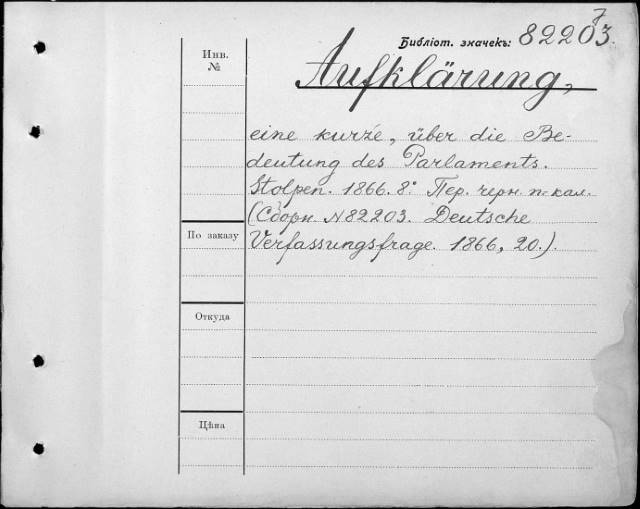 7
Библіот. значекъ: 82203.
Инв. №
Aufklärung,
eine kurze, über die Be-
deutung des Parlaments.
Stolpen. 1866. 8°. Пер. черн. п. кал.
(Сборн. N 82203. Deutsche
По заказу
Verfassungsfrage. 1866, 20.).
Откуда
Цѣна